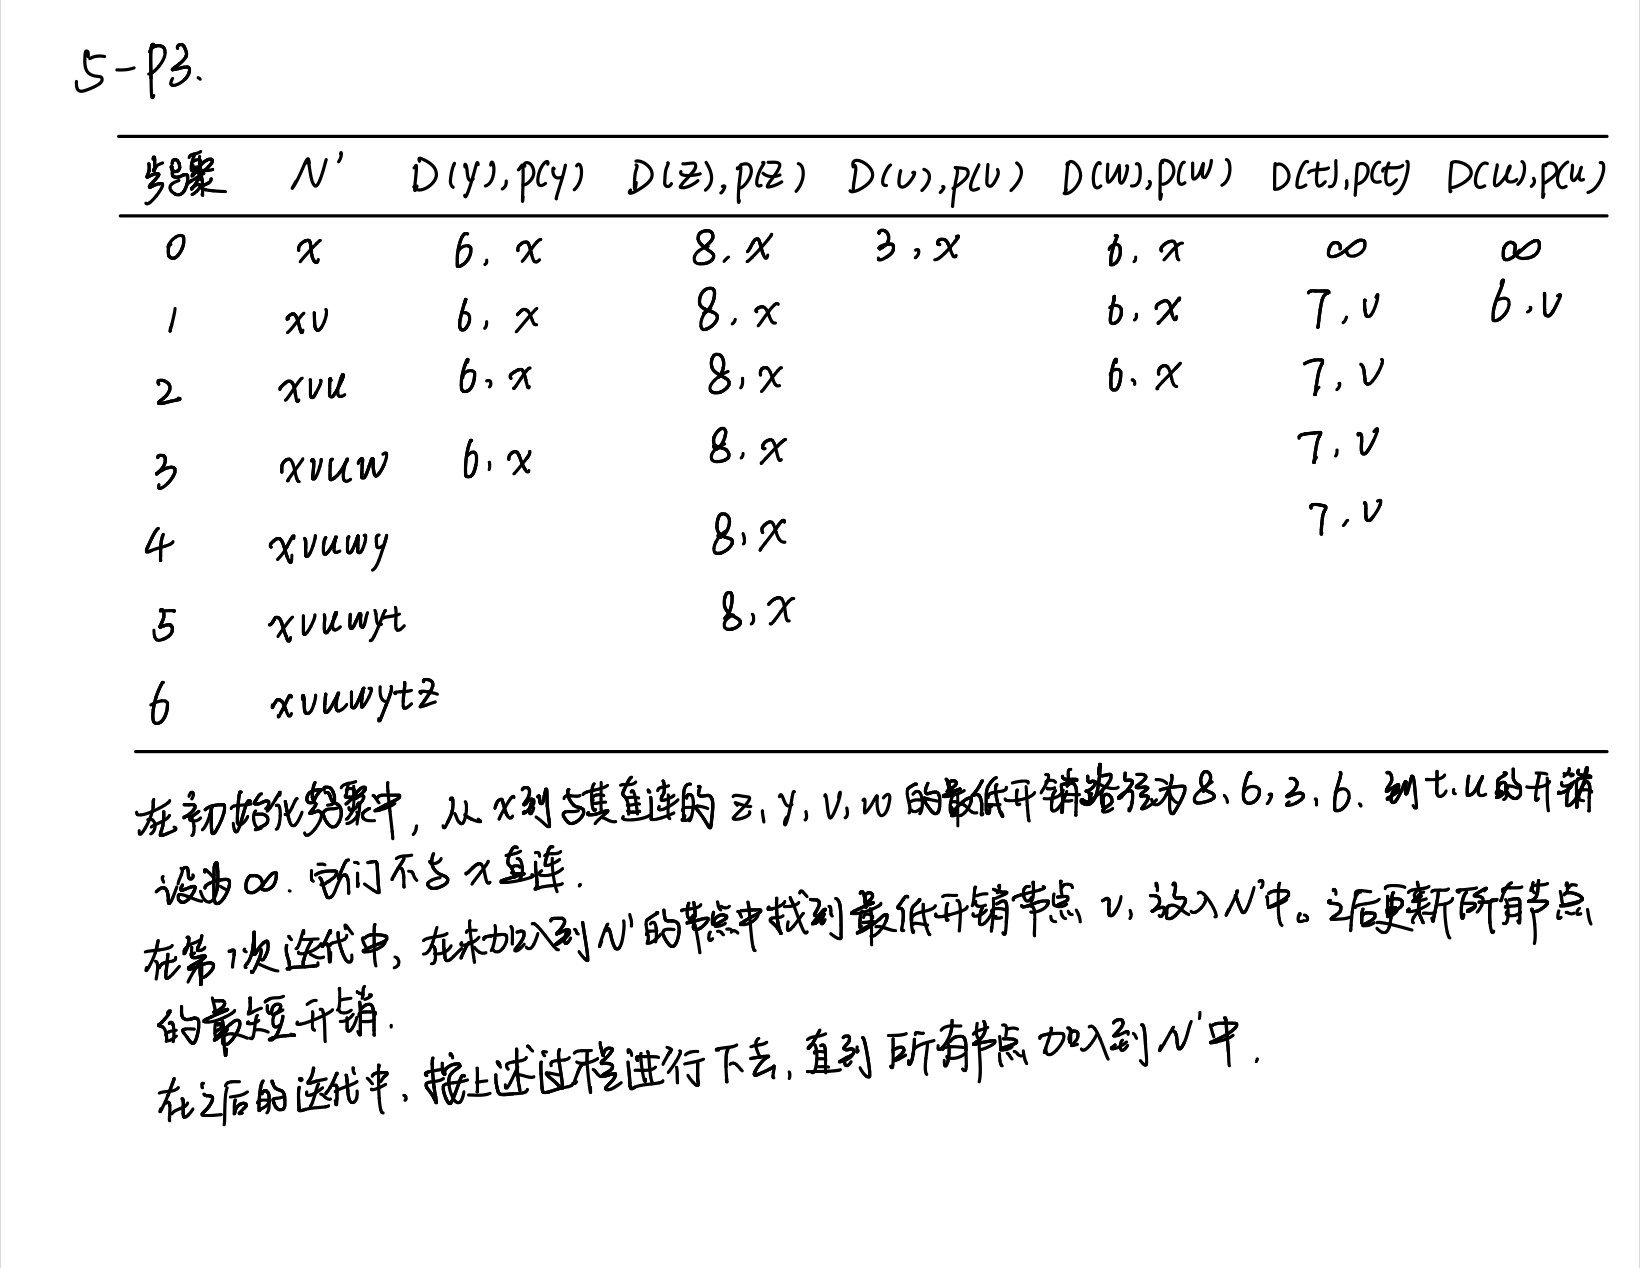 5-P3.
步骤 N' D(y),p(y) D(z),p(z) D(v),p(v) D(w),p(w) D(t),p(t) D(u),p(u)
0 x 6,x 8,x 3,x 6,x ∞ ∞
1 xv 6,x 8,x 6,x 7,v 6,v
2 xvu 6,x 8,x 6,x 7,v
3 xvuw 6,x 8,x 7,v
4 xvuwy 8,x 7,v
5 xvuwyt 8,x
6 xvuwytz
在初始化步骤中, 从x到与其直连的z,y,v,w的最低开销路径为8,6,3,6. 到t,u的开销
设为∞. 它们不与x直连.
在第1次迭代中, 在未加入到N'的节点中找到最低开销节点v, 放入N'中。之后更新所有节点
的最短开销.
在之后的迭代中, 按上述过程进行下去, 直到所有节点加入到N'中.